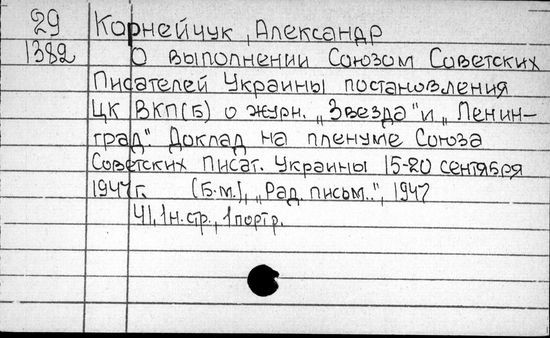 29 Корнейчук, Александр
1382 О выполнении Союзом Советских
Писателей Украины постановления
ЦК ВКП(Б) о журн. „Звезда" и „Ленин-
град" Доклад на пленуме Союза
Советских писат. Украины 15-20 сентября
1947 г. (Б.м.), „Рад. письм..", 1947
41, 1н.стр., 1портр.